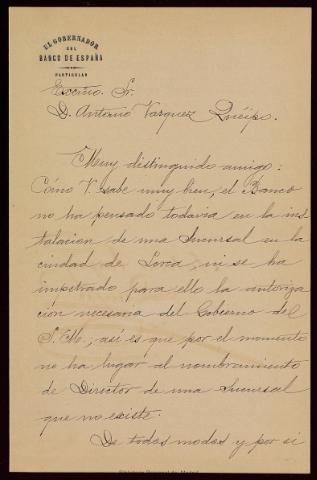 EL GOBERNADOR
DEL
BANCO DE ESPAÑA
PARTICULAR
Excmo. Sr.
D. Antonio Vazquez Quéipo.
Muy distinguido amigo:
Cómo V. sabe muy bien, el Banco
no ha pensado todavia en la ins
talacion de una Sucursal en la
ciudad de Lorca, ni se ha
impetrado para ello la autoriza
ción necesaria del Gobierno de
S. M.; así es que por el momento
no ha lugar al nombramiento
de Director de una Sucursal
que no existe.
De todos modos y por si
Biblioteca Regional de Madrid